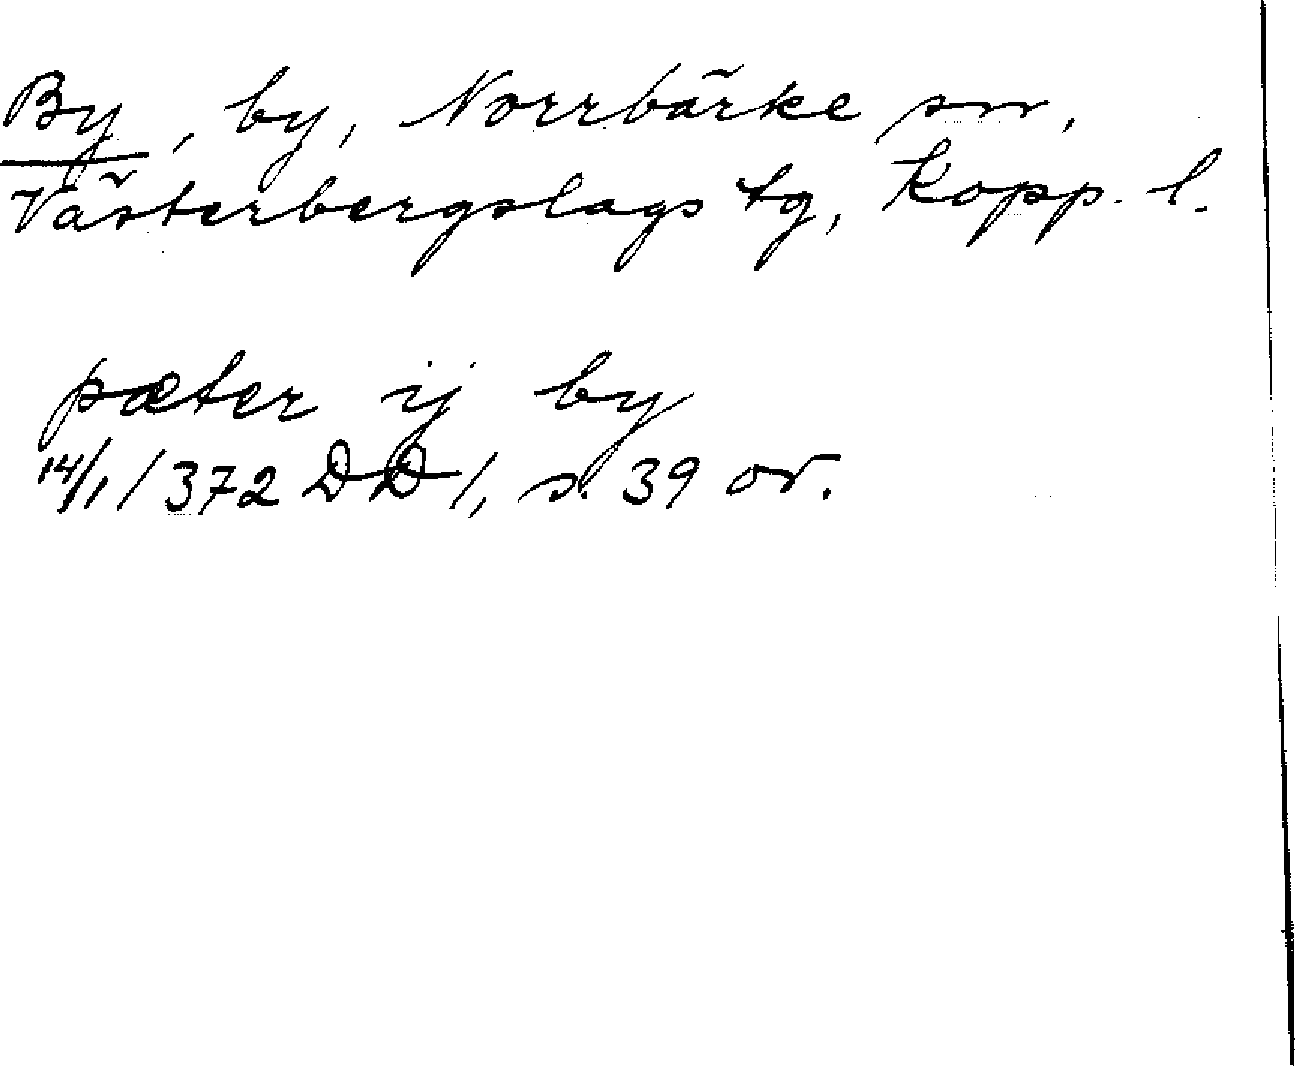 By, by, Norrbärke sn,
Västerbergslags tg, Kopp. l.
pæter ij by
14/1 1372 DD 1, s. 39 or.